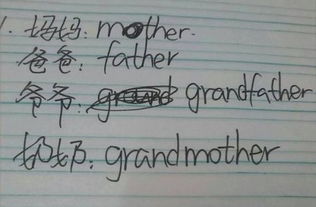 1. 妈妈: mother.
爸爸: father
爷爷: grandfather
奶奶: grandmother